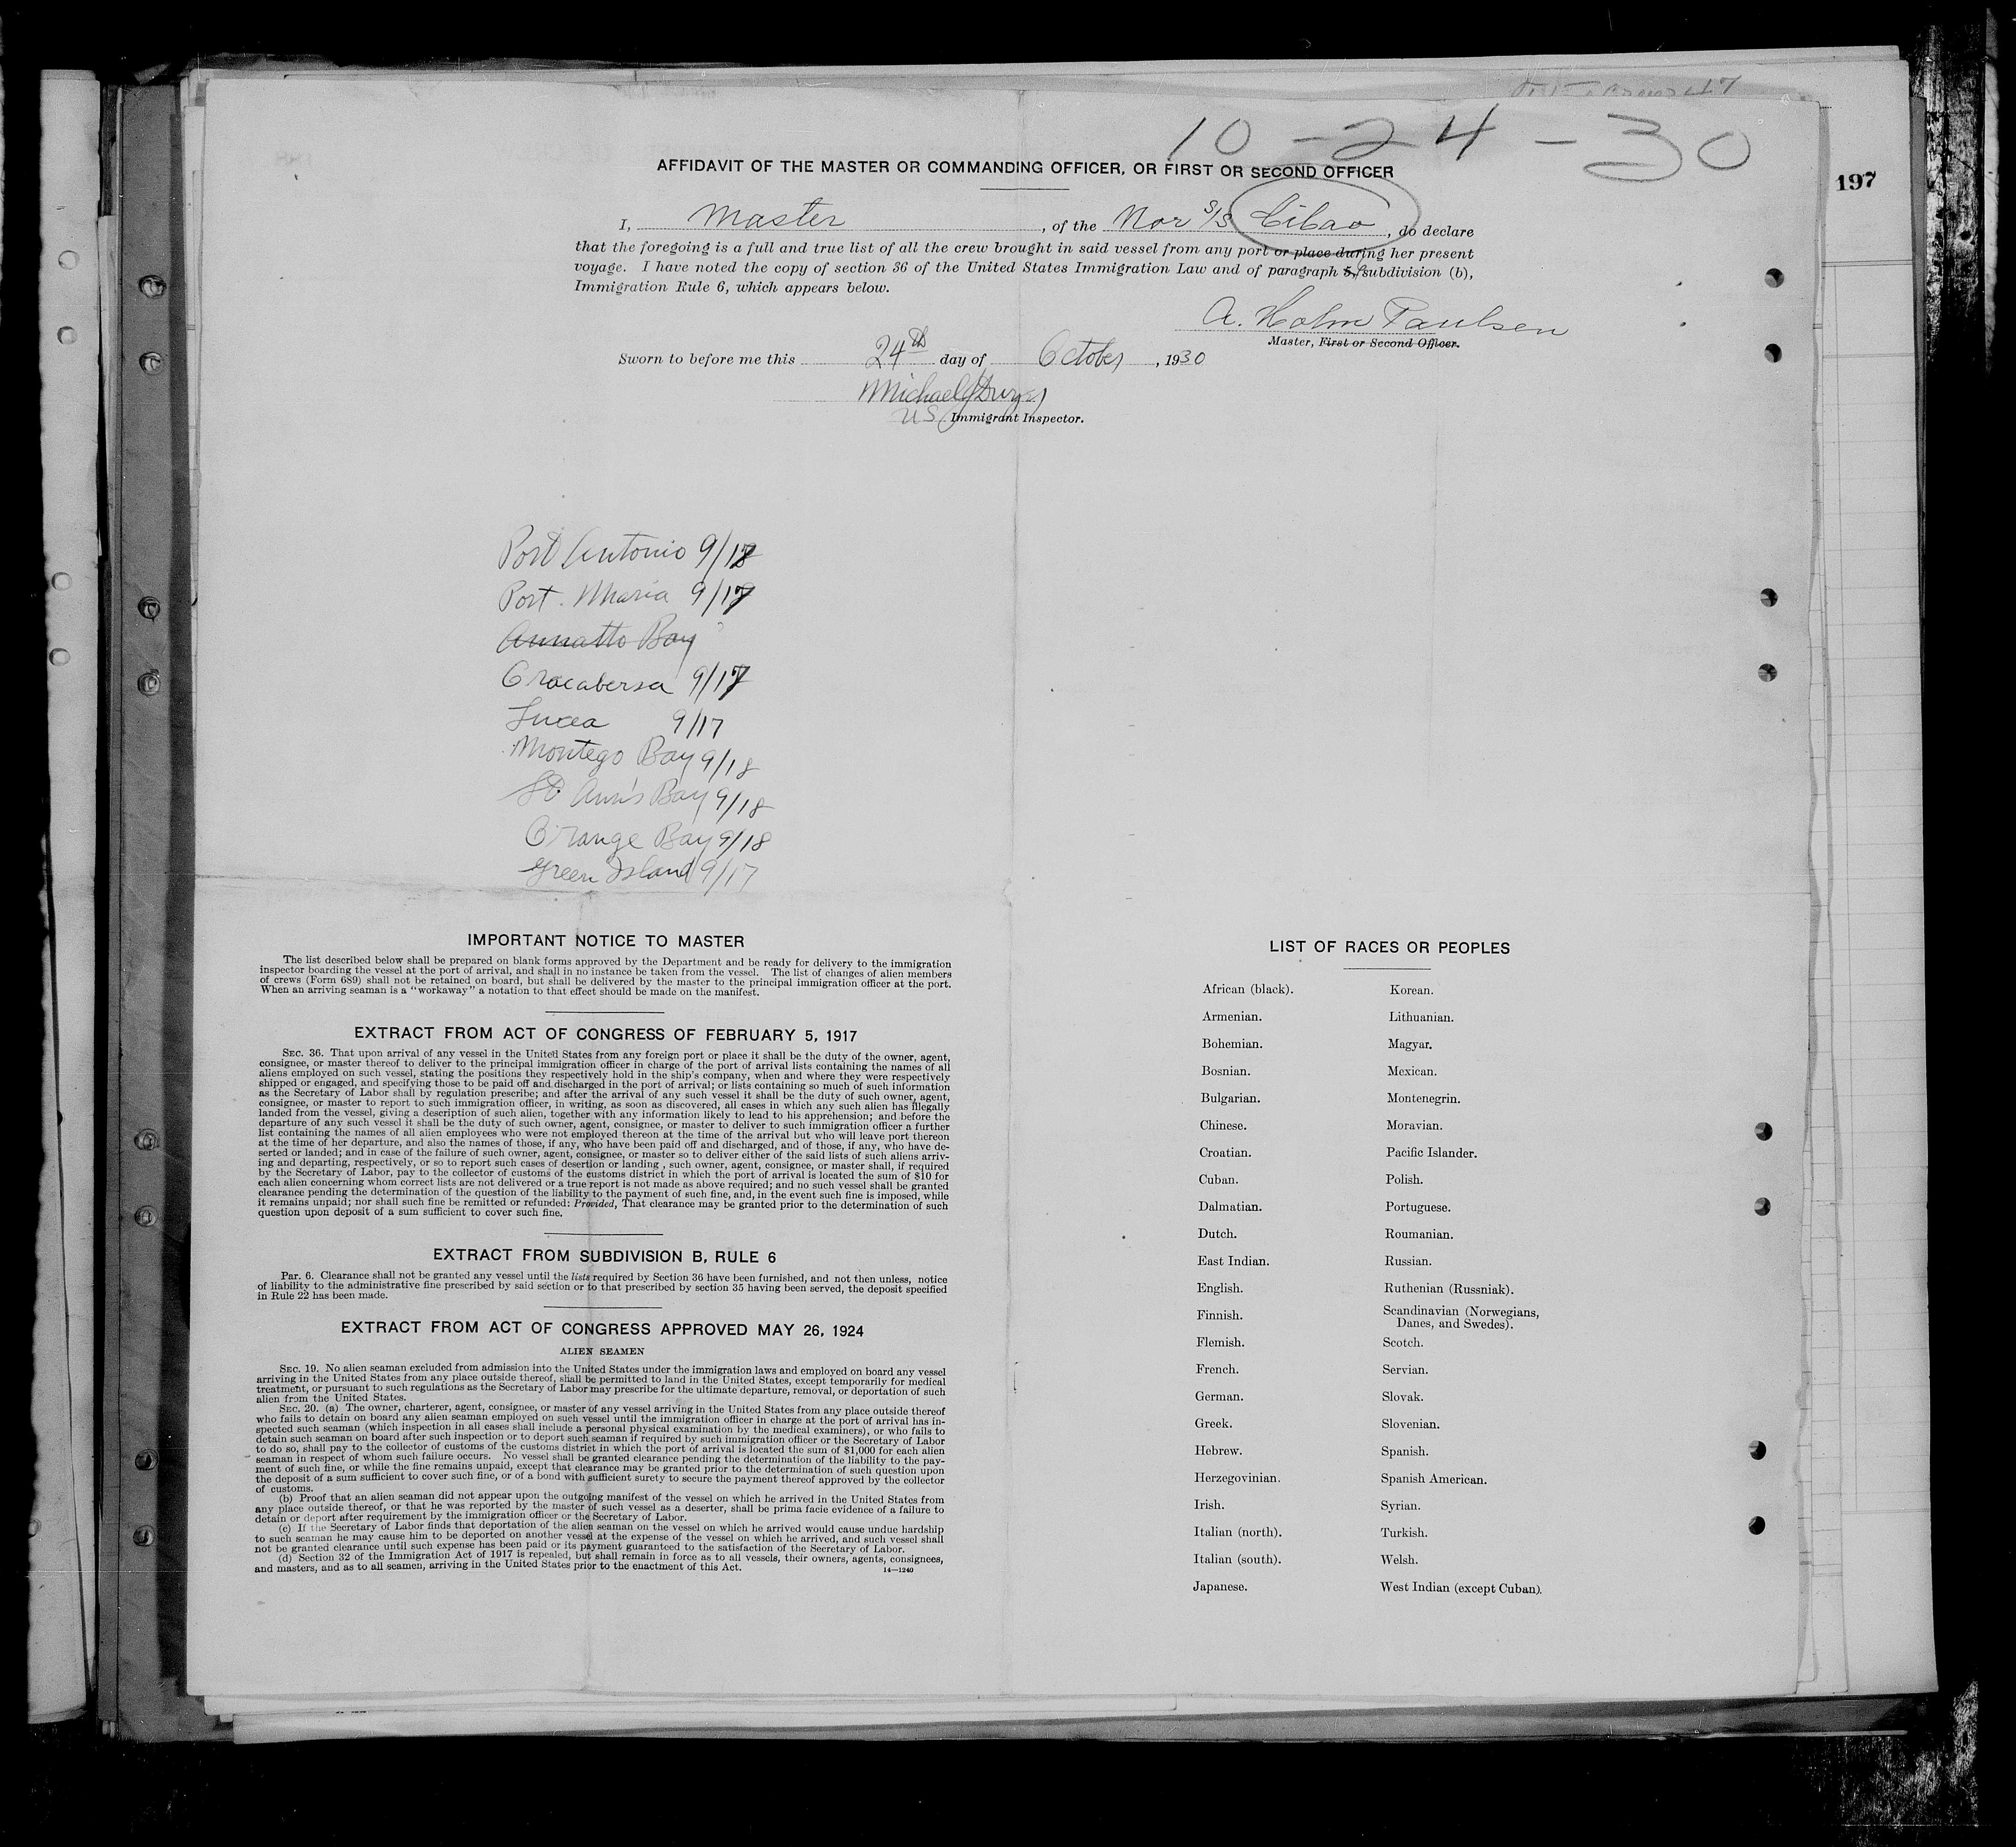 10-24-30
197
AFFIDAVIT OF THE MASTER OR COMMANDING OFFICER, OR FIRST OR SECOND OFFICER
I, Master, of the Nor S/S Cibao, do declare
that the foregoing is a full and true list of all the crew brought in said vessel from any port or place during her present
voyage. I have noted the copy of section 36 of the United States Immigration Law and of paragraph 5, subdivision (b),
Immigration Rule 6, which appears below.
A. Holm Paulsen
Master, First or Second Officer.
Sworn to before me this 24th day of October, 1930
Michael
US Immigrant Inspector.
Port Antonio 9/18
Port. Maria 9/17
Annatto Bay
Oracabersa 9/17
Lucea 9/17
Montego Bay 9/18
St Ann's Bay 9/18
Orange Bay 9/18
Green Island 9/17
IMPORTANT NOTICE TO MASTER
The list described below shall be prepared on blank forms approved by the Department and be ready for delivery to the immigration
inspector boarding the vessel at the port of arrival, and shall in no instance be taken from the vessel. The list of changes of alien members
of crews (Form 689) shall not be retained on board, but shall be delivered by the master to the principal immigration officer at the port.
When an arriving seaman is a "workaway" a notation to that effect should be made on the manifest.
EXTRACT FROM ACT OF CONGRESS OF FEBRUARY 5, 1917
SEC. 36. That upon arrival of any vessel in the United States from any foreign port or place it shall be the duty of the owner, agent,
consignee, or master thereof to deliver to the principal immigration officer in charge of the port of arrival lists containing the names of all
aliens employed on such vessel, stating the positions they respectively hold in the ship's company, when and where they were respectively
shipped or engaged, and specifying those to be paid off and discharged in the port of arrival; or lists containing so much of such information
as the Secretary of Labor shall by regulation prescribe; and after the arrival of any such vessel it shall be the duty of such owner, agent,
consignee, or master to report to such immigration officer, in writing, as soon as discovered, all cases in which any such alien has illegally
landed from the vessel, giving a description of such alien, together with any information likely to lead to his apprehension; and before the
departure of any such vessel it shall be the duty of such owner, agent, consignee, or master to deliver to such immigration officer a further
list containing the names of all alien employees who were not employed thereon at the time of the arrival but who will leave port thereon
at the time of her departure, and also the names of those, if any, who have been paid off and discharged, and of those, if any, who have de-
serted or landed; and in case of the failure of such owner, agent, consignee, or master so to deliver either of the said lists of such aliens arriv-
ing and departing, respectively, or so to report such cases of desertion or landing, such owner, agent, consignee, or master shall, if required
by the Secretary of Labor, pay to the collector of customs of the customs district in which the port of arrival is located the sum of $10 for
each alien concerning whom correct lists are not delivered or a true report is not made as above required; and no such vessel shall be granted
clearance pending the determination of the question of the liability to the payment of such fine, and, in the event such fine is imposed, while
it remains unpaid; nor shall such fine be remitted or refunded: Provided, That clearance may be granted prior to the determination of such
question upon deposit of a sum sufficient to cover such fine.
EXTRACT FROM SUBDIVISION B, RULE 6
Par. 6. Clearance shall not be granted any vessel until the lists required by Section 36 have been furnished, and not then unless, notice
of liability to the administrative fine prescribed by said section or to that prescribed by section 35 having been served, the deposit specified
in Rule 22 has been made.
EXTRACT FROM ACT OF CONGRESS APPROVED MAY 26, 1924
ALIEN SEAMEN
SEC. 19. No alien seaman excluded from admission into the United States under the immigration laws and employed on board any vessel
arriving in the United States from any place outside thereof, shall be permitted to land in the United States, except temporarily for medical
treatment, or pursuant to such regulations as the Secretary of Labor may prescribe for the ultimate departure, removal, or deportation of such
alien from the United States.
SEC. 20. (a) The owner, charterer, agent, consignee, or master of any vessel arriving in the United States from any place outside thereof
who fails to detain on board any alien seaman employed on such vessel until the immigration officer in charge at the port of arrival has in-
spected such seaman (which inspection in all cases shall include a personal physical examination by the medical examiners), or who fails to
detain such seaman on board after such inspection or to deport such seaman if required by such immigration officer or the Secretary of Labor
to do so, shall pay to the collector of customs of the customs district in which the port of arrival is located the sum of $1,000 for each alien
seaman in respect of whom such failure occurs. No vessel shall be granted clearance pending the determination of the liability to the pay-
ment of such fine, or while the fine remains unpaid, except that clearance may be granted prior to the determination of such question upon
the deposit of a sum sufficient to cover such fine, or of a bond with sufficient surety to secure the payment thereof approved by the collector
of customs.
(b) Proof that an alien seaman did not appear upon the outgoing manifest of the vessel on which he arrived in the United States from
any place outside thereof, or that he was reported by the master of such vessel as a deserter, shall be prima facie evidence of a failure to
detain or deport after requirement by the immigration officer or the Secretary of Labor.
(c) If the Secretary of Labor finds that deportation of the alien seaman on the vessel on which he arrived would cause undue hardship
to such seaman he may cause him to be deported on another vessel at the expense of the vessel on which he arrived, and such vessel shall
not be granted clearance until such expense has been paid or its payment guaranteed to the satisfaction of the Secretary of Labor.
(d) Section 32 of the Immigration Act of 1917 is repealed, but shall remain in force as to all vessels, their owners, agents, consignees,
and masters, and as to all seamen, arriving in the United States prior to the enactment of this Act.
14—1240
LIST OF RACES OR PEOPLES
African (black).
Armenian.
Bohemian.
Bosnian.
Bulgarian.
Chinese.
Croatian.
Cuban.
Dalmatian.
Dutch.
East Indian.
English.
Finnish.
Flemish.
French.
German.
Greek.
Hebrew.
Herzegovinian.
Irish.
Italian (north).
Italian (south).
Japanese.
Korean.
Lithuanian.
Magyar.
Mexican.
Montenegrin.
Moravian.
Pacific Islander.
Polish.
Portuguese.
Roumanian.
Russian.
Ruthenian (Russniak).
Scandinavian (Norwegians,
Danes, and Swedes).
Scotch.
Servian.
Slovak.
Slovenian.
Spanish.
Spanish American.
Syrian.
Turkish.
Welsh.
West Indian (except Cuban).